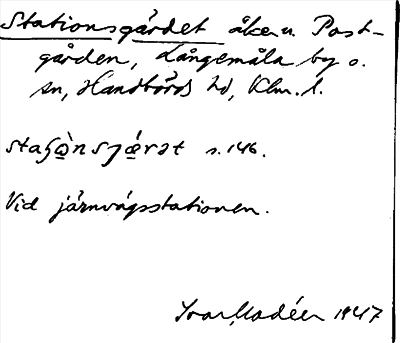 Stationsgärdet åker u. Post-
gården, Långemåla by o.
sn, Handbörds hd, Klm. l.
s. 146.
Vid järnvägsstationen.
Ivar Modéer 1947